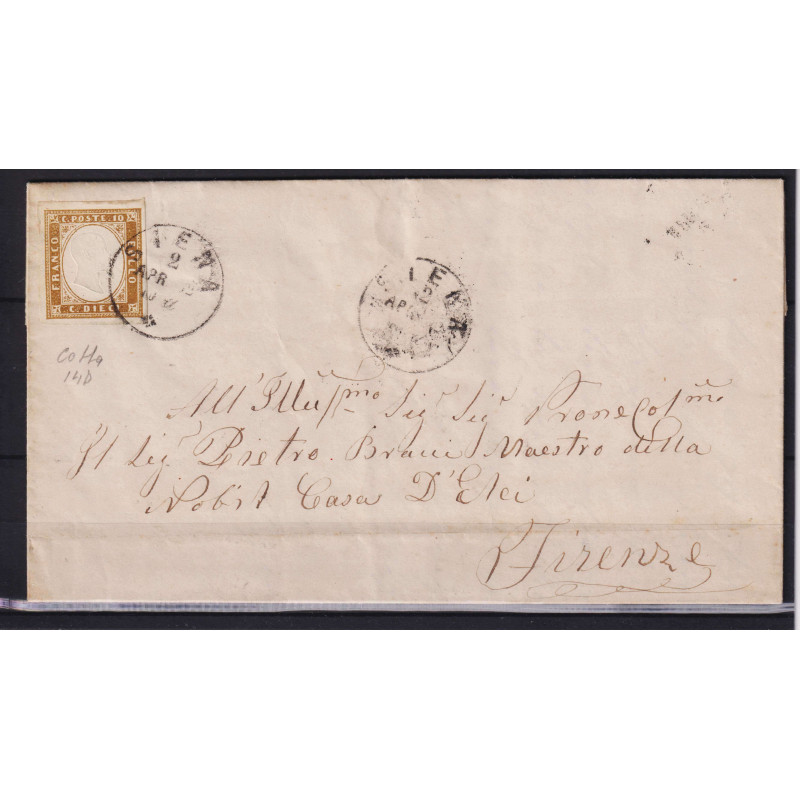 C. POSTE. 10
FRANCO
BOLLO
C. DIECI
SIENA
2
APR
SIENA
AP
14D
All' Illus.mo Sig.r Sig.r Prone Col.mo
Il Sig.r Pietro Bracci Maestro della
Nobil Casa D'Elci
Firenze